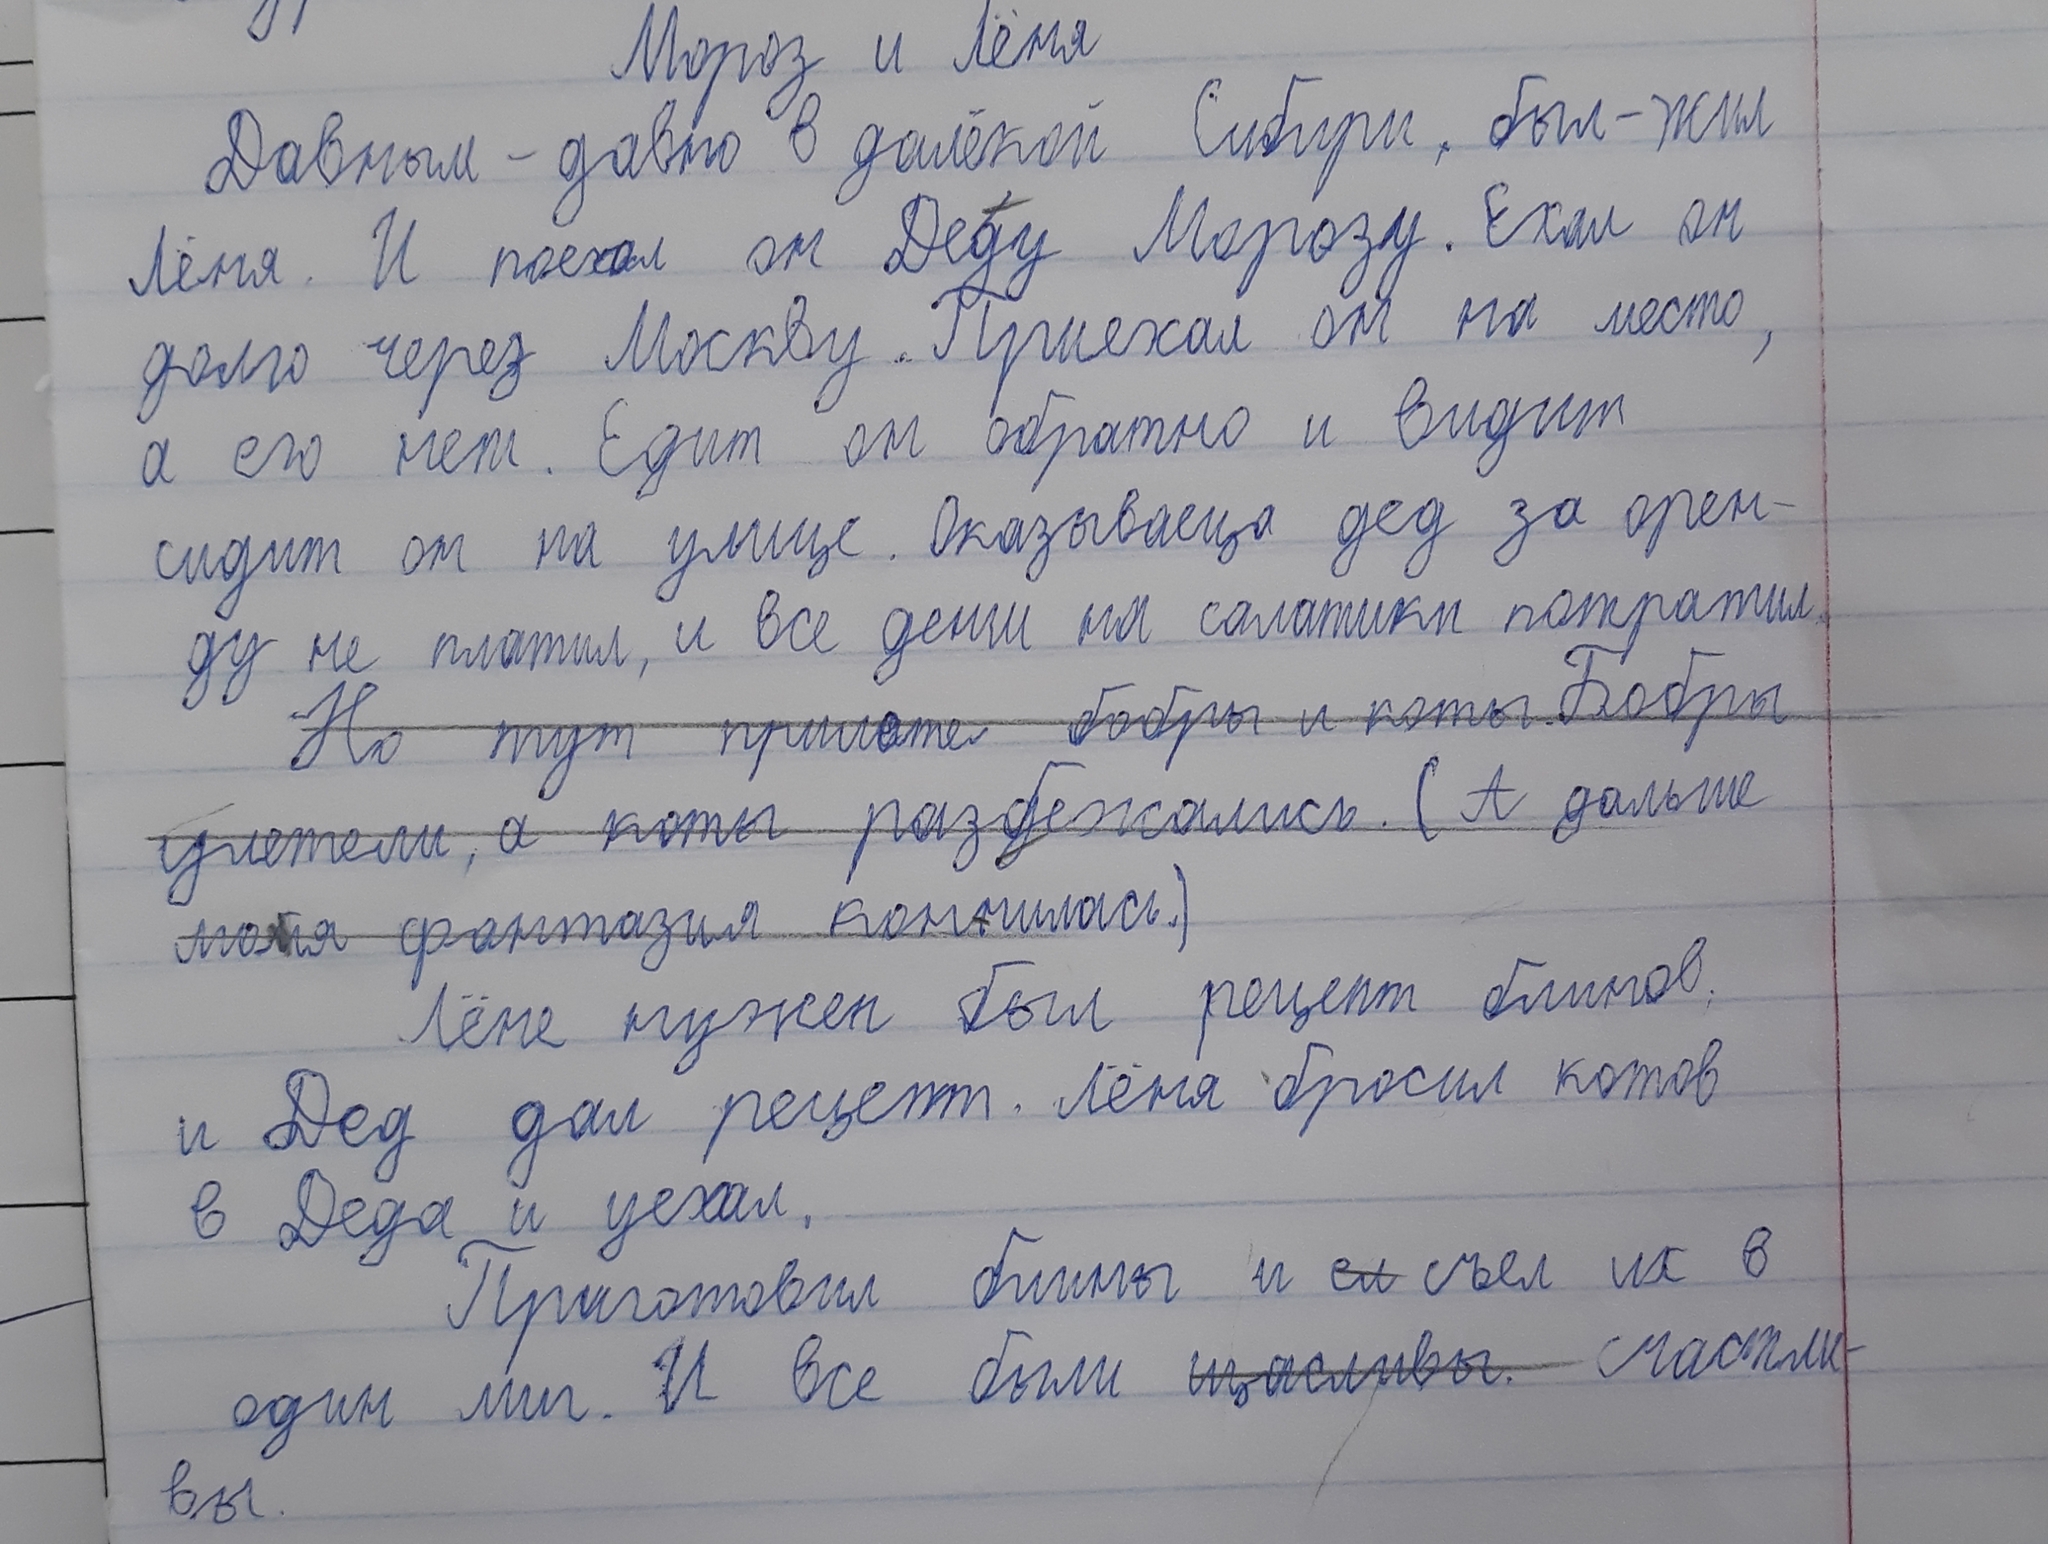 Мороз и Лёня
Давным-давно в далёкой Сибири, был-жил
Лёня. И поехал он Деду Морозу. Ехал он
долго через Москву. Приехал он на место,
а его нет. Едит он обратно и видит
сидит он на улице. Оказываеца дед за орен-
ду не платил, и все денги на салатики потратил.
Но тут бобры и коты. Бобры
улетели, а коты разбежались. (А дальше
моя фантазия кончилась.)
Лёне нужен был рецепт блинов,
и Дед дал рецепт. Лёня бросил котов
в Деда и уехал.
Приготовил блины и ел съел их в
один миг. И все были щасливы. счастли-
вы.